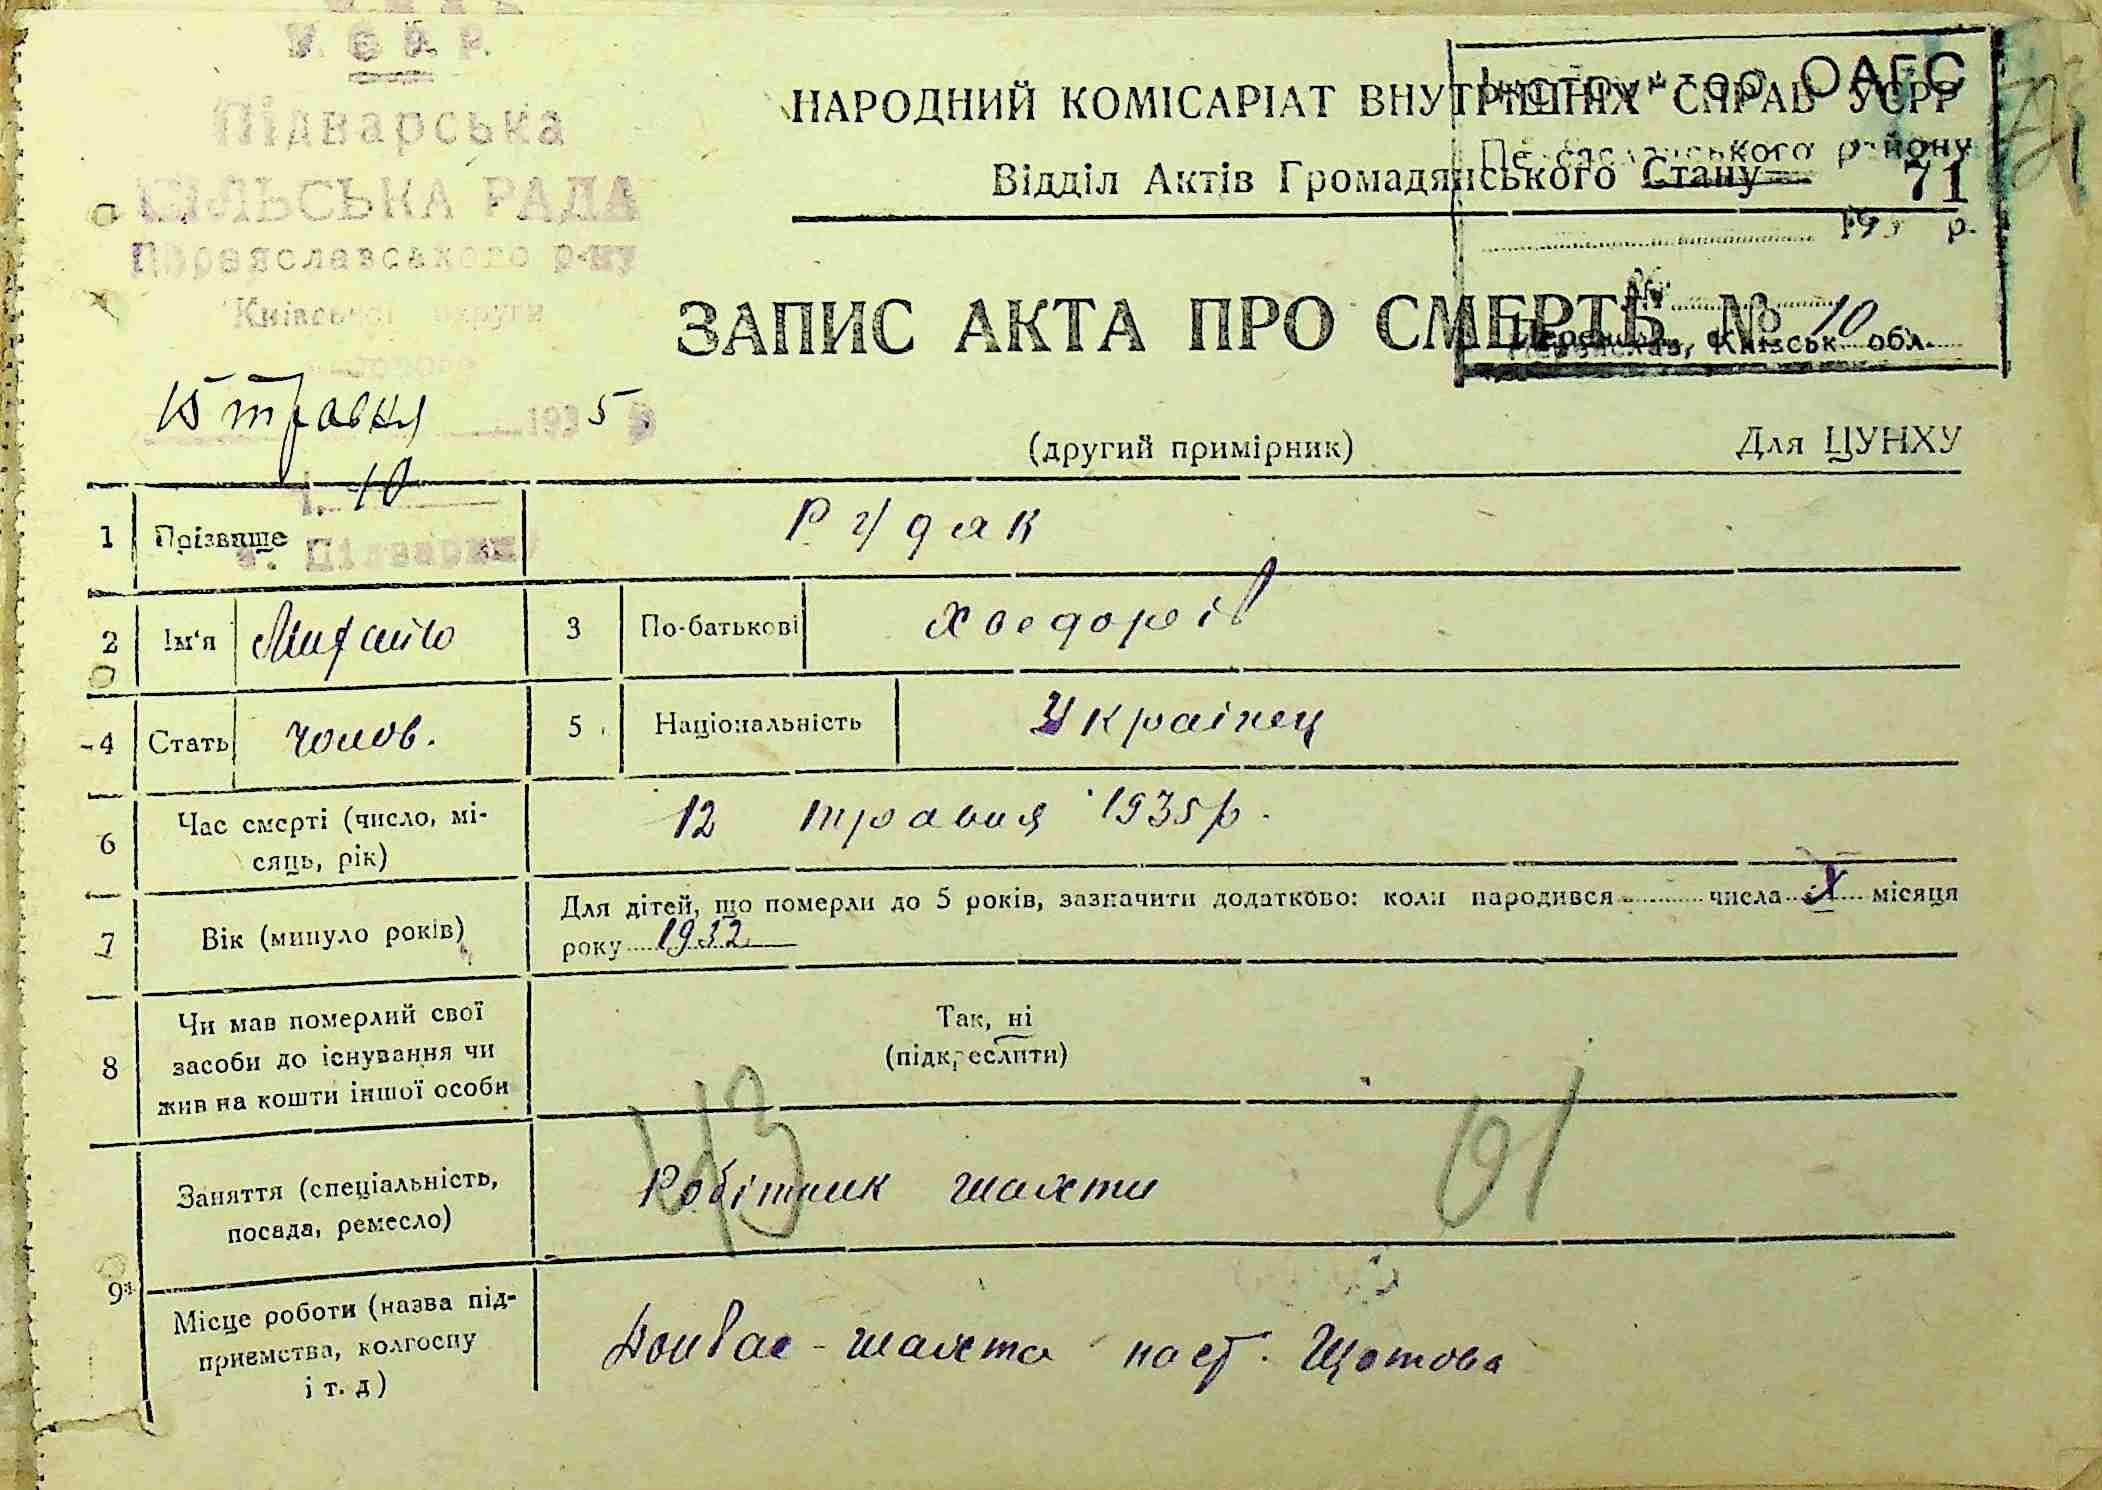 У. С. Р. Р.
Підварська
СІЛЬСЬКА РАДА
Переяславського р-ну
Київської округи
15 травня 1935
10
с. Підварки
НАРОДНИЙ КОМІСАРІАТ ВНУТРІШНІХ СПРАВ УСРР
Відділ Актів Громадянського Стану
71
Інструктор ОАГС
Переяславського району
193 р.
№
Переяслав, Київськ. обл.
ЗАПИС АКТА ПРО СМЕРТЬ № 10
(другий примірник)
Для ЦУНХУ
1 Прізвище Рудак
2 Ім'я Михайло 3 По-батькові Хведорів
4 Стать чолов. 5 Національність Українец
6 Час смерті (число, мі-
сяць, рік) 12 травня 1935 р.
7 Вік (минуло років) Для дітей, що померли до 5 років, зазначити додатково: коли народився числа X місяця
року 1932
8 Чи мав померлий свої
засоби до існування чи
жив на кошти іншої особи
Так, ні
(підкреслити)
43 61
9 Заняття (спеціальність,
посада, ремесло) Робітник шахти
Місце роботи (назва під-
приємства, колгоспу
і т. д) Донбас - шахта пост. Щотова